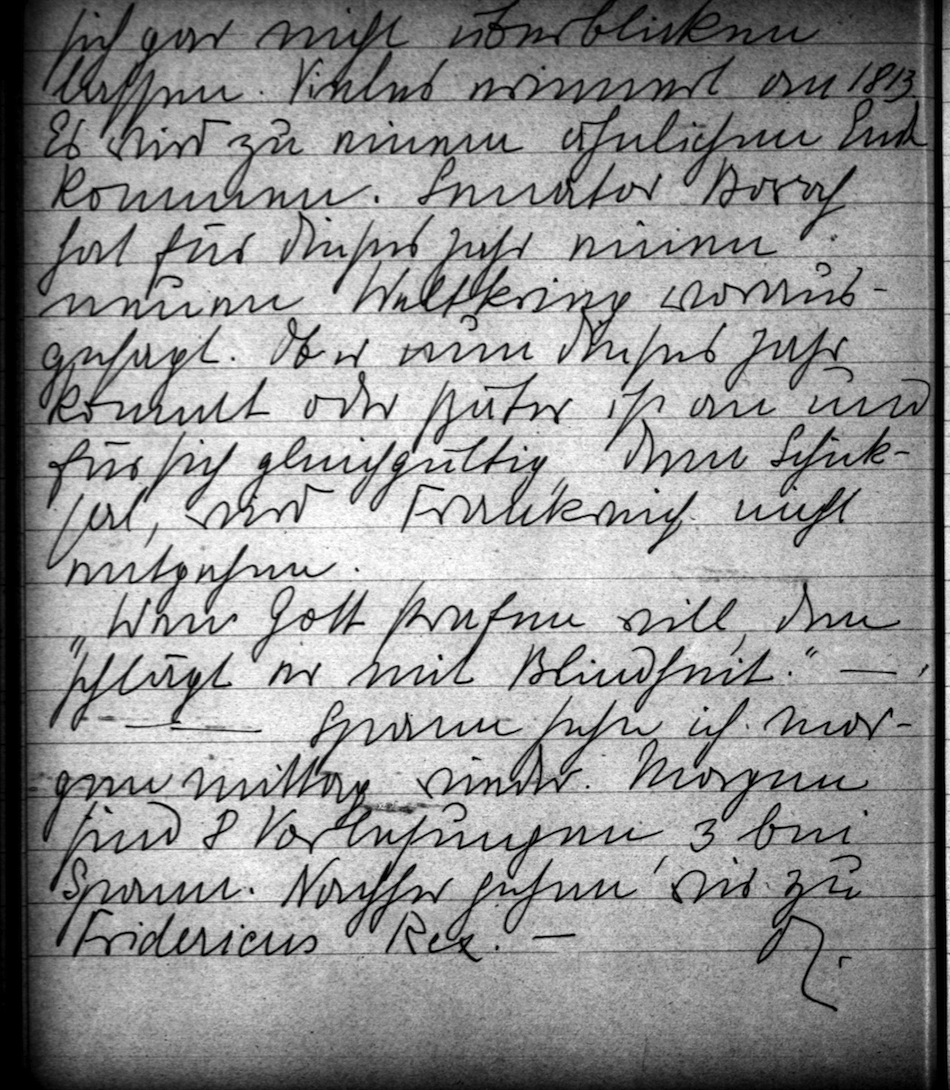 sich gar nicht überblicken
lassen. Vieles erinnert an 1813
Es wird zu einem ähnlichen End
kommen. Senator Borah
hat für dieses Jahr einen
neuen Weltkrieg voraus-
gesagt. Ob er nun dieses Jahr
kommt oder später ist an und
für sich gleichgültig, denn Schick-
sal, wird Frankreich nicht
entgehen.
„Wen Gott strafen will, den
schlägt er mit Blindheit.“ —
— — Spann sehe ich mor-
gen mittag wieder. Morgen
sind 8 Vorlesungen, 3 bei
Spann. Nachher gehen wir zu
Fridericus Rex. —